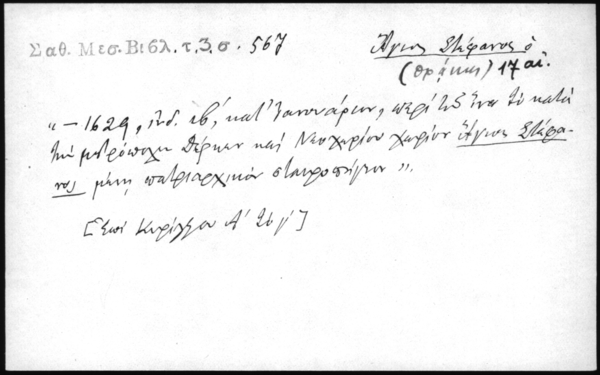 Σαθ. Μεσ. Βιβλ. τ. 3. σ. 567
Ἅγιος Στέφανος ὁ
(Θράκης) 17 αἰ.
"— 1629, ἰνδ. ιβ', κατ' Ἰανουάριον, περὶ τοῦ ἵνα τὸ κατὰ
τὴν μητρόπολιν Δέρκων καὶ Νεοχωρίου χωρίον Ἅγιος Στέφα-
νος μένῃ πατριαρχικὸν σταυροπήγιον".
[Ἐπὶ Κυρίλλου Α' τὸ γ']